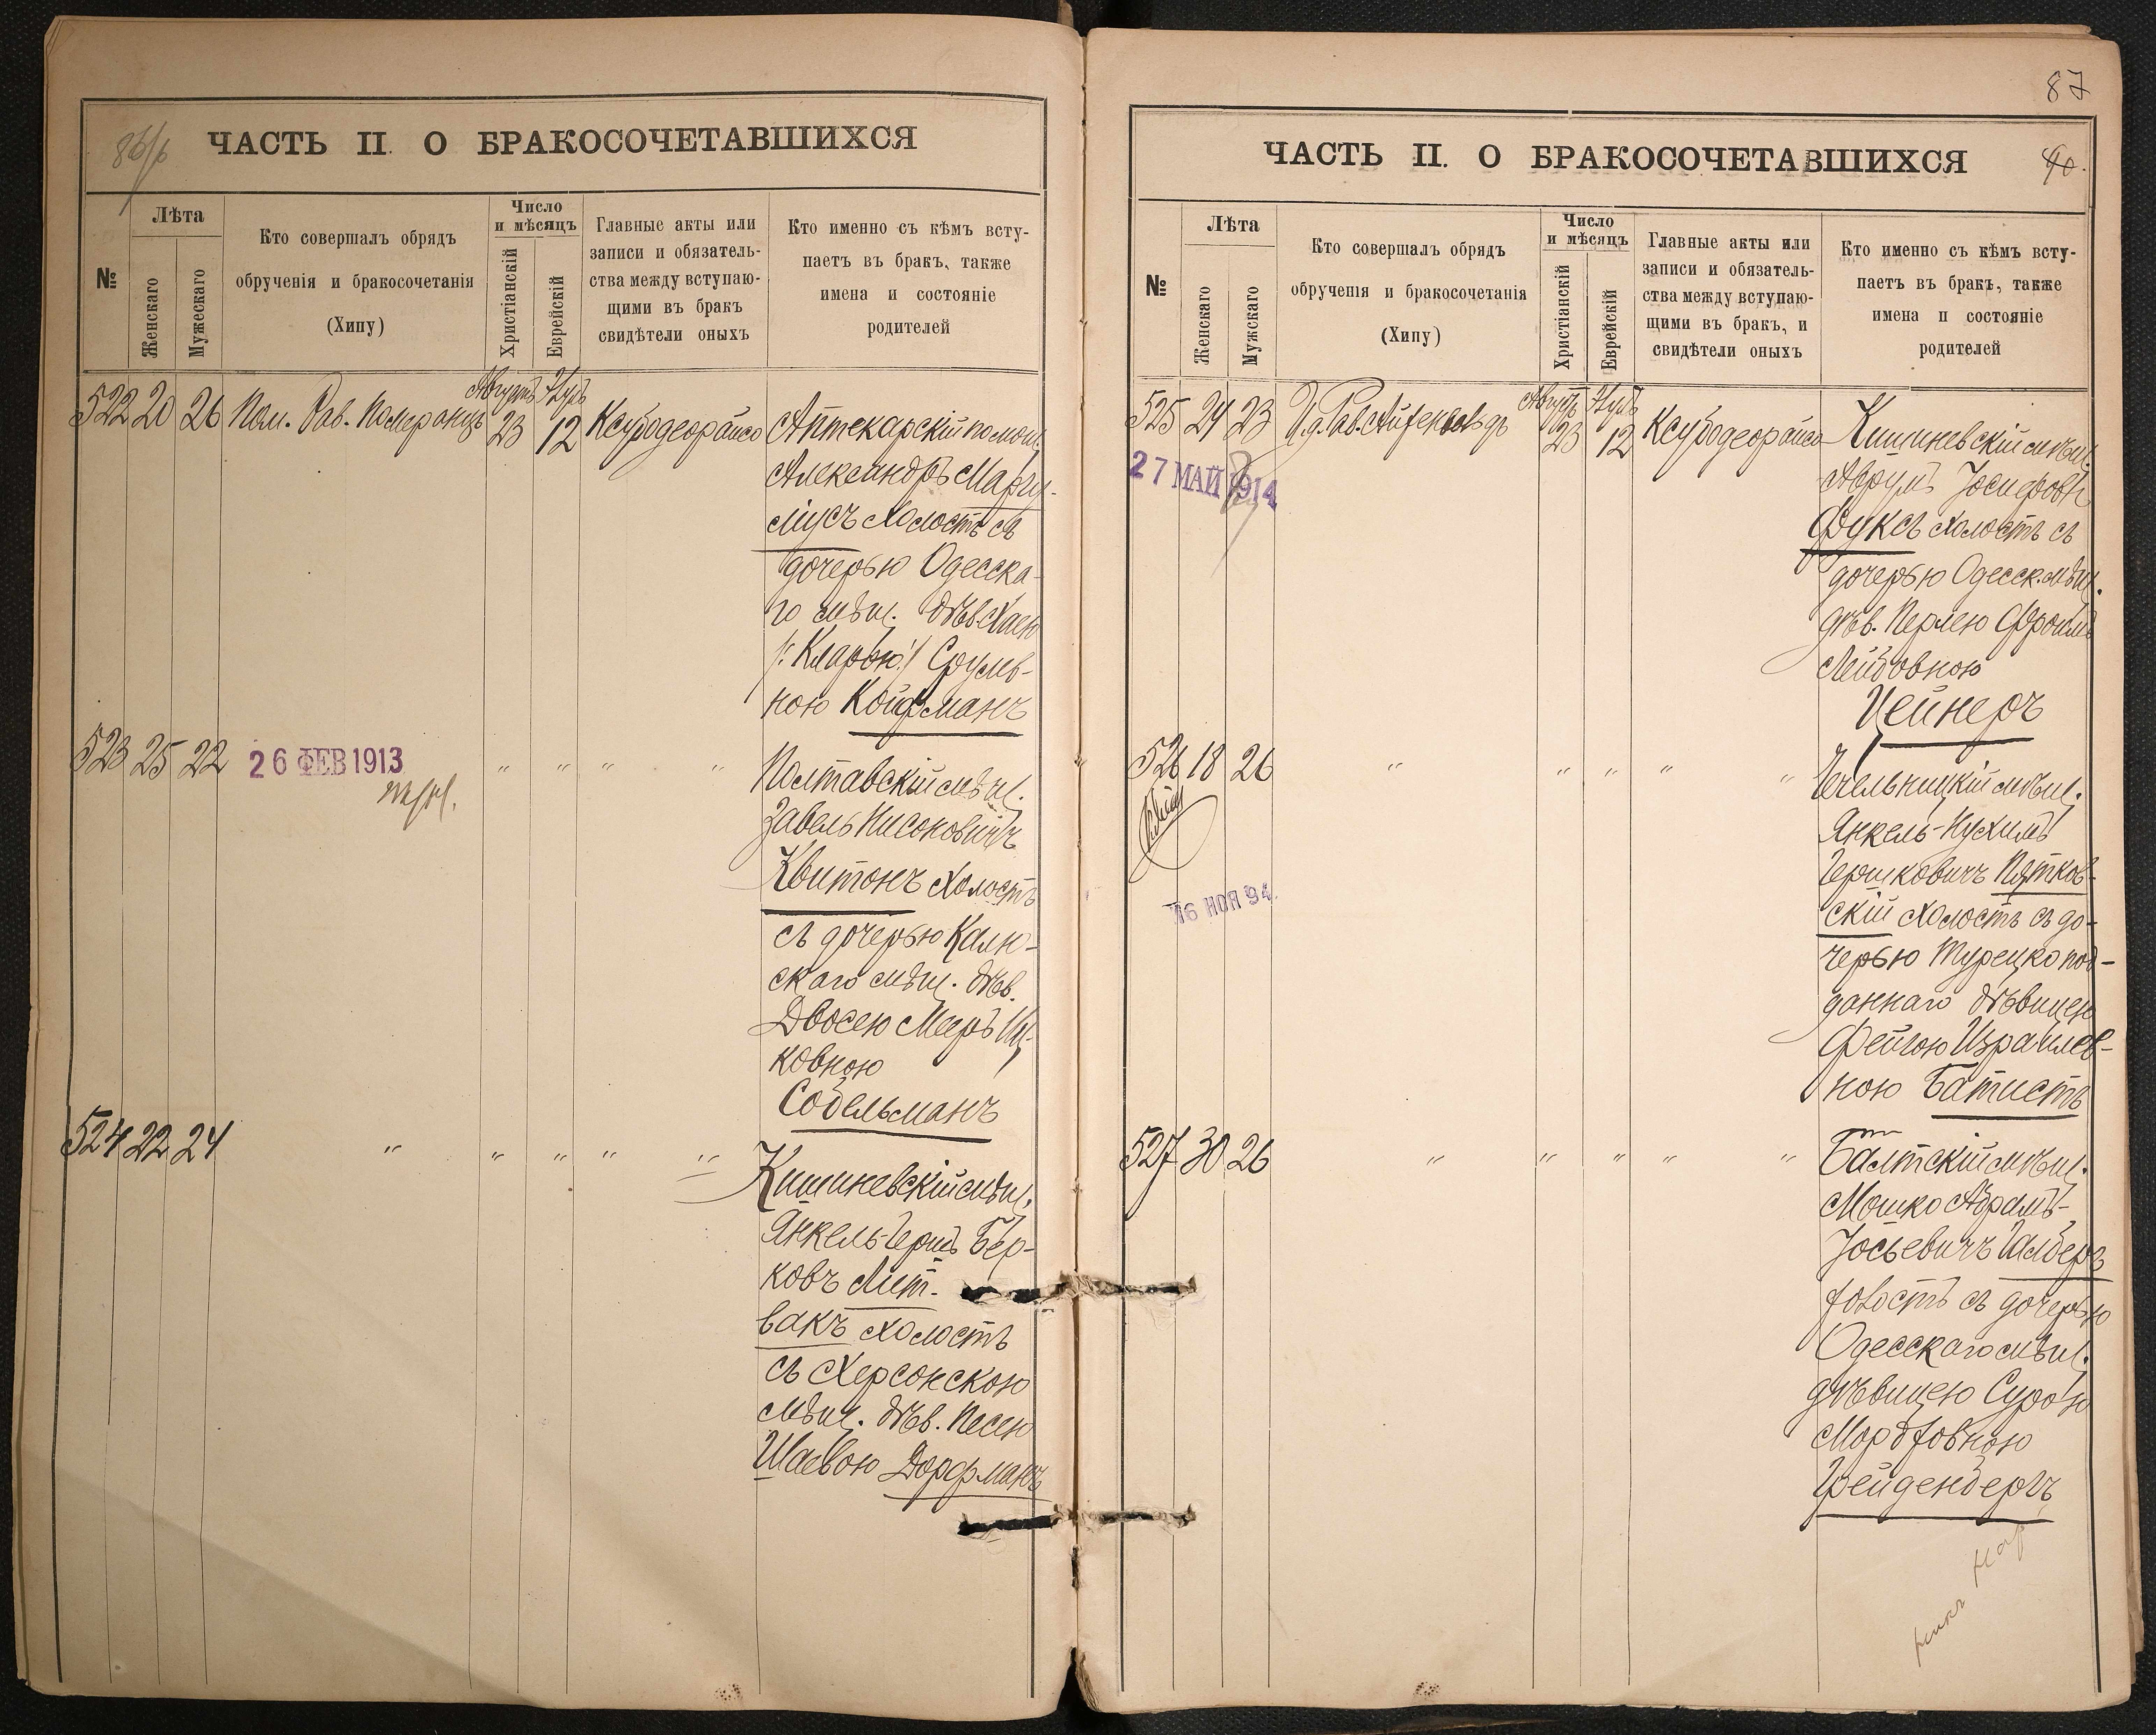 86/б
ЧАСТЬ II О БРАКОСОЧЕТАВШИХСЯ
№
Лѣта
Женскаго
Мужескаго
Кто совершалъ обрядъ
обрученія и бракосочетанія
(Хипу)
Число
и мѣсяцъ
Христіанскій
Еврейскій
Главные акты или
записи и обязатель-
ства между вступаю-
щими въ бракъ
свидѣтели оныхъ
Кто именно съ кѣмъ всту-
паетъ въ бракъ, также
имена и состояніе
родителей
522 20 26 Пом. Рав. Померанцъ Августъ 23 12 Ксубодеорайсо
Аптекарскій помощ.
Александръ
холостъ съ
дочерью Одесска-
го мѣщ. дѣв. Хаею
/:Кларою:/ Сруль-
ною Койфманъ
523 25 22
26 ФЕВ 1913
" " " "
Полтавскій мѣщ.
Завель Нисоновичъ
Квитонъ холостъ
съ дочерью Калю-
скаго мѣщ. дѣв.
Двосею Мееръ Иц-
ковною
Собельманъ
524 22 24 " " " " "
Кишиневскій мѣщ.
Янкель-Гершъ Бер-
ковъ Лит-
вакъ холостъ
съ Херсонскою
мѣщ. дѣв. Песею
Шаевою Дорфманъ
87
90.
ЧАСТЬ II. О БРАКОСОЧЕТАВШИХСЯ
№
Лѣта
Женскаго
Мужскаго
Кто совершалъ обрядъ
обрученія и бракосочетанія
(Хипу)
Число
и мѣсяцъ
Христіанскій
Еврейскій
Главные акты или
записи и обязатель-
ства между вступаю-
щими въ бракъ, и
свидѣтели оныхъ
Кто именно съ кѣмъ всту-
паетъ въ бракъ, также
имена и состояніе
родителей
525 24 23 И.д. Рав. Айзенвальдъ Августъ 23 12 Ксубодеорайсо
27 МАЙ 1914
Кишиневскій мѣщ.
Аврумъ Іосифовъ
Фуксъ холостъ съ
дочерью Одесск. мѣщ.
дѣв. Перлею Фроимъ
Лейбовною
Цейнеръ
526 18 26 " " " " "
16 НОЯ 94.
Чечельницкій мѣщ.
Янкель-Нухимъ
Гершковичъ Пятков-
скій холостъ съ до-
черью Турецко под-
даннаго дѣвицею
Фейгою Израилев-
ною Батистъ
527 30 26 " " " " "
Балтскій мѣщ.
Мошко Абрамъ-
Іосьевичъ
холостъ съ дочерью
Одесскаго мѣщ.
дѣвицею Сурою
Мордковною
Грейденбергъ